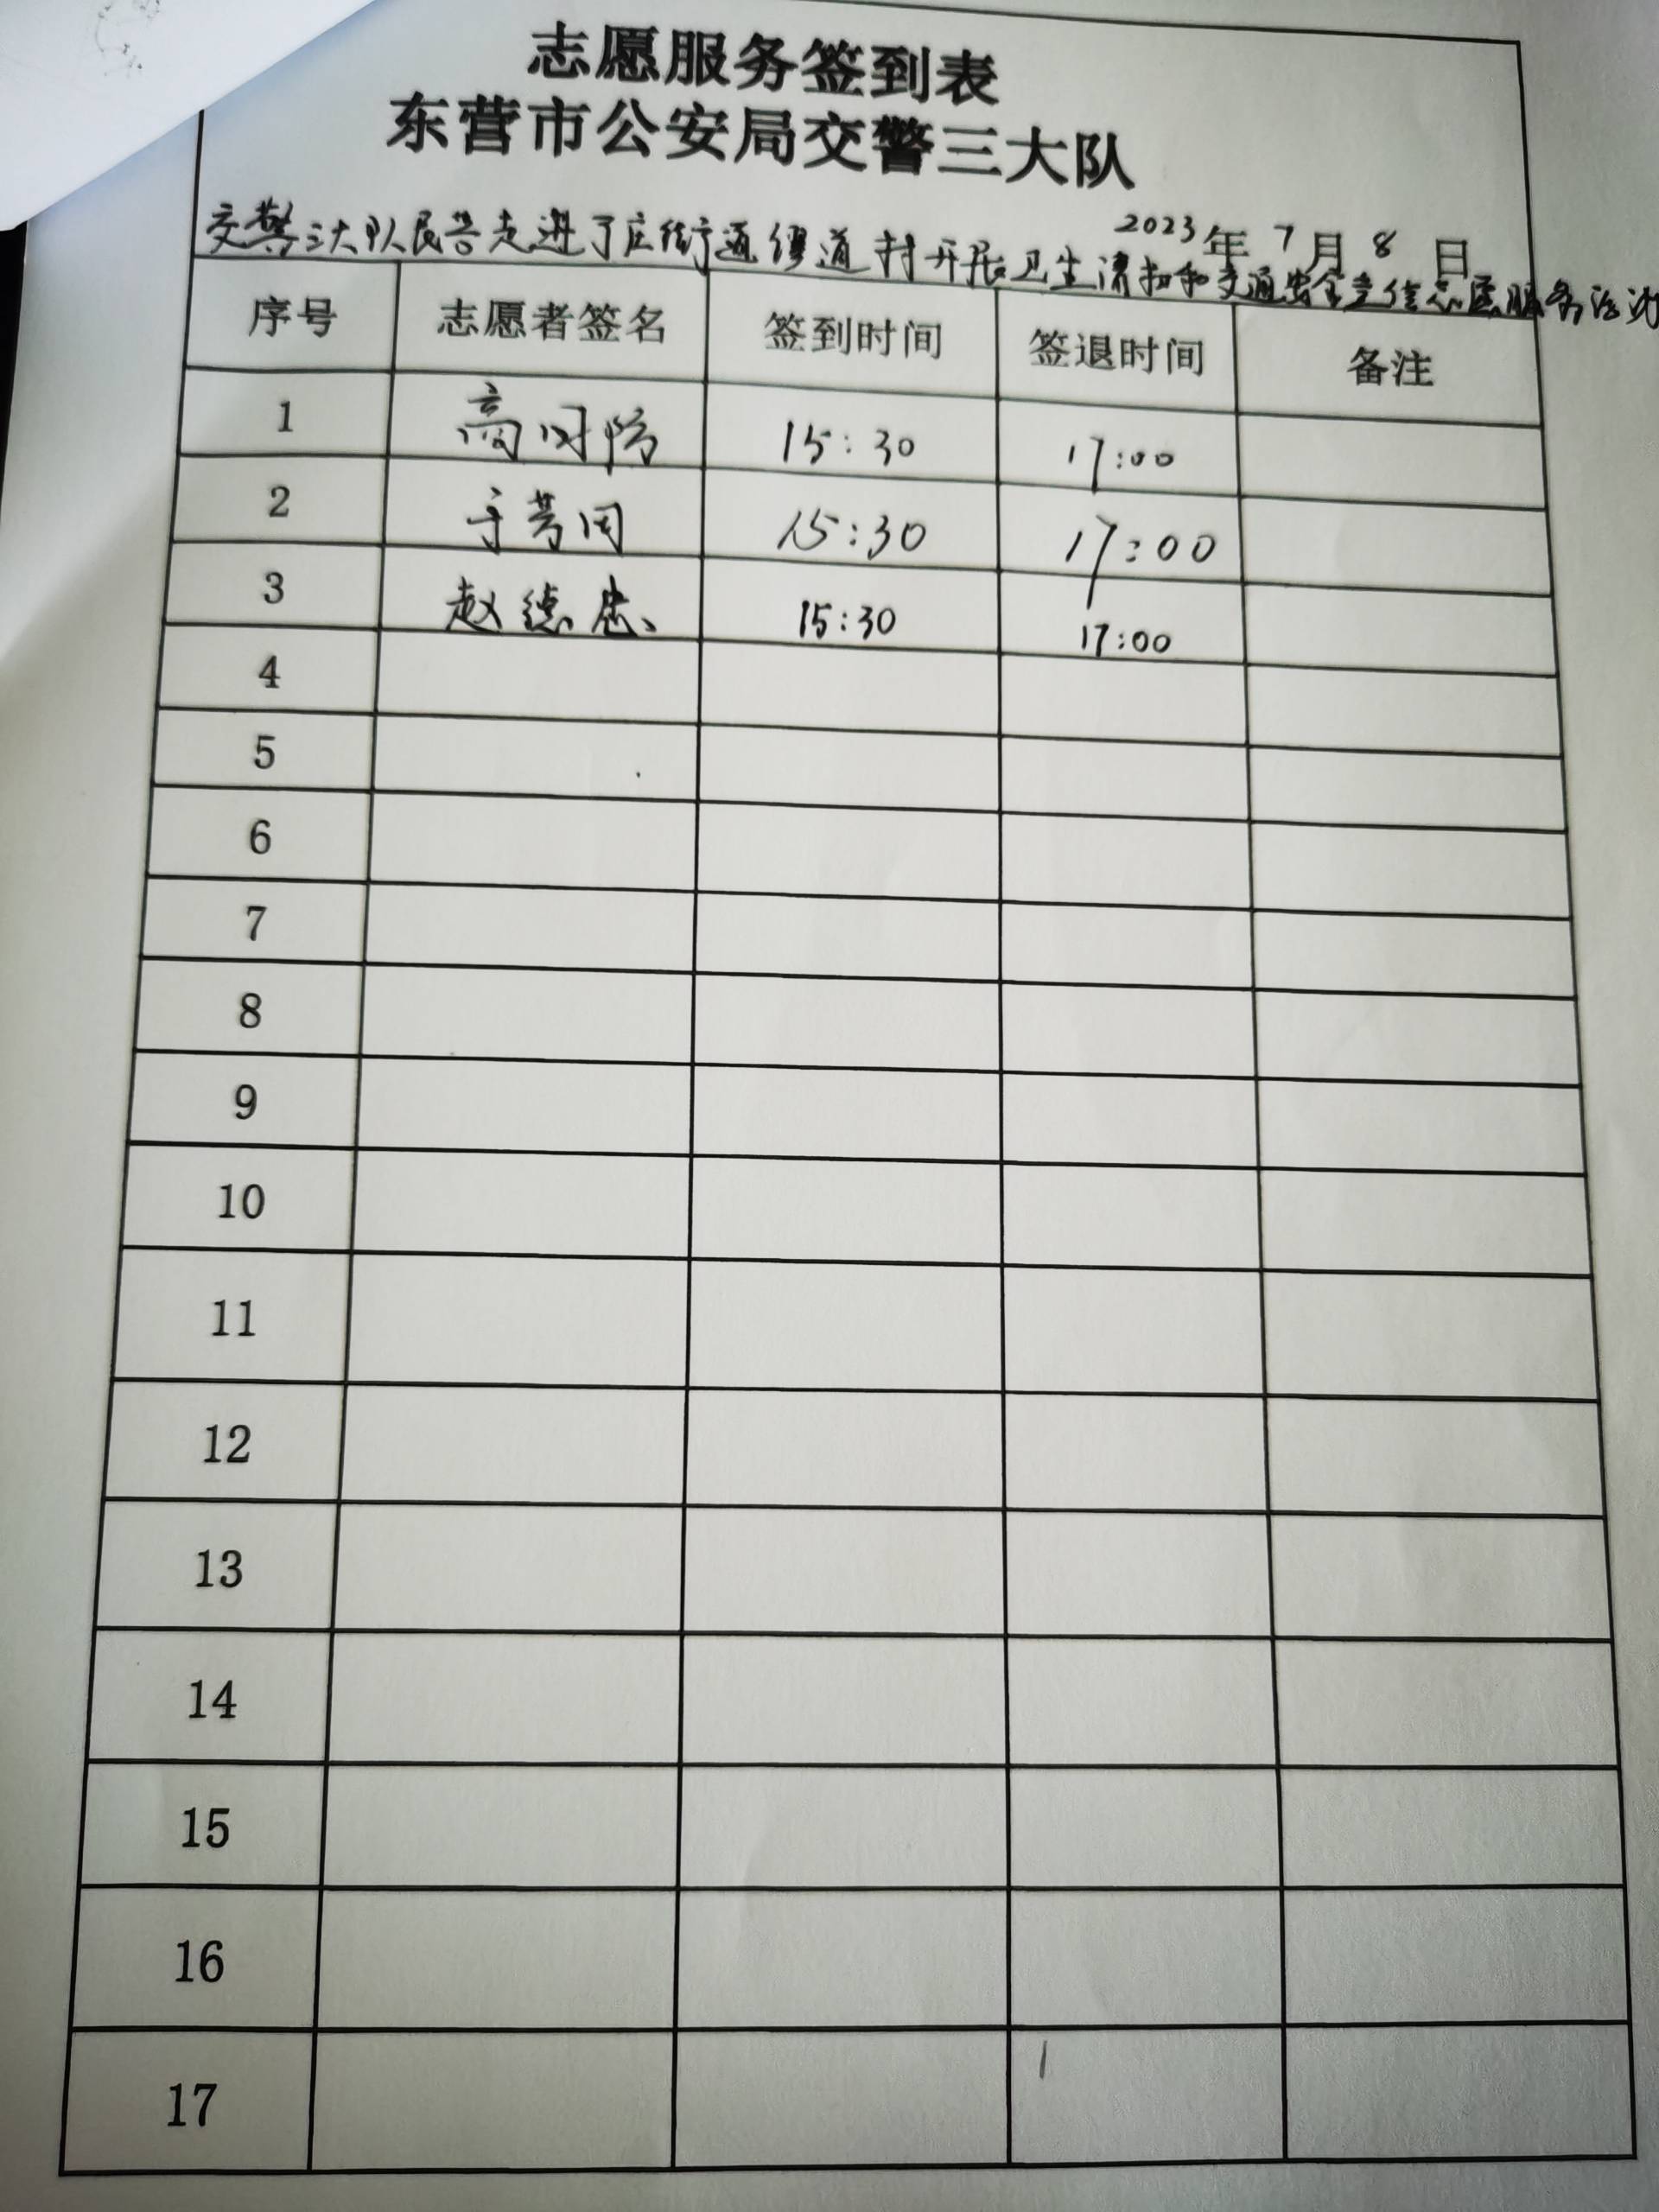 志愿服务签到表
东营市公安局交警三大队
2023年 7月 8 日
交警三大队民警走进丁庄街道 道村开展卫生清扫和交通安全宣传志愿服务活动
序号 志愿者签名 签到时间 签退时间 备注
1 高 15:30 17:00
2 15:30 17:00
3 赵德忠 15:30 17:00
4
5
6
7
8
9
10
11
12
13
14
15
16
17